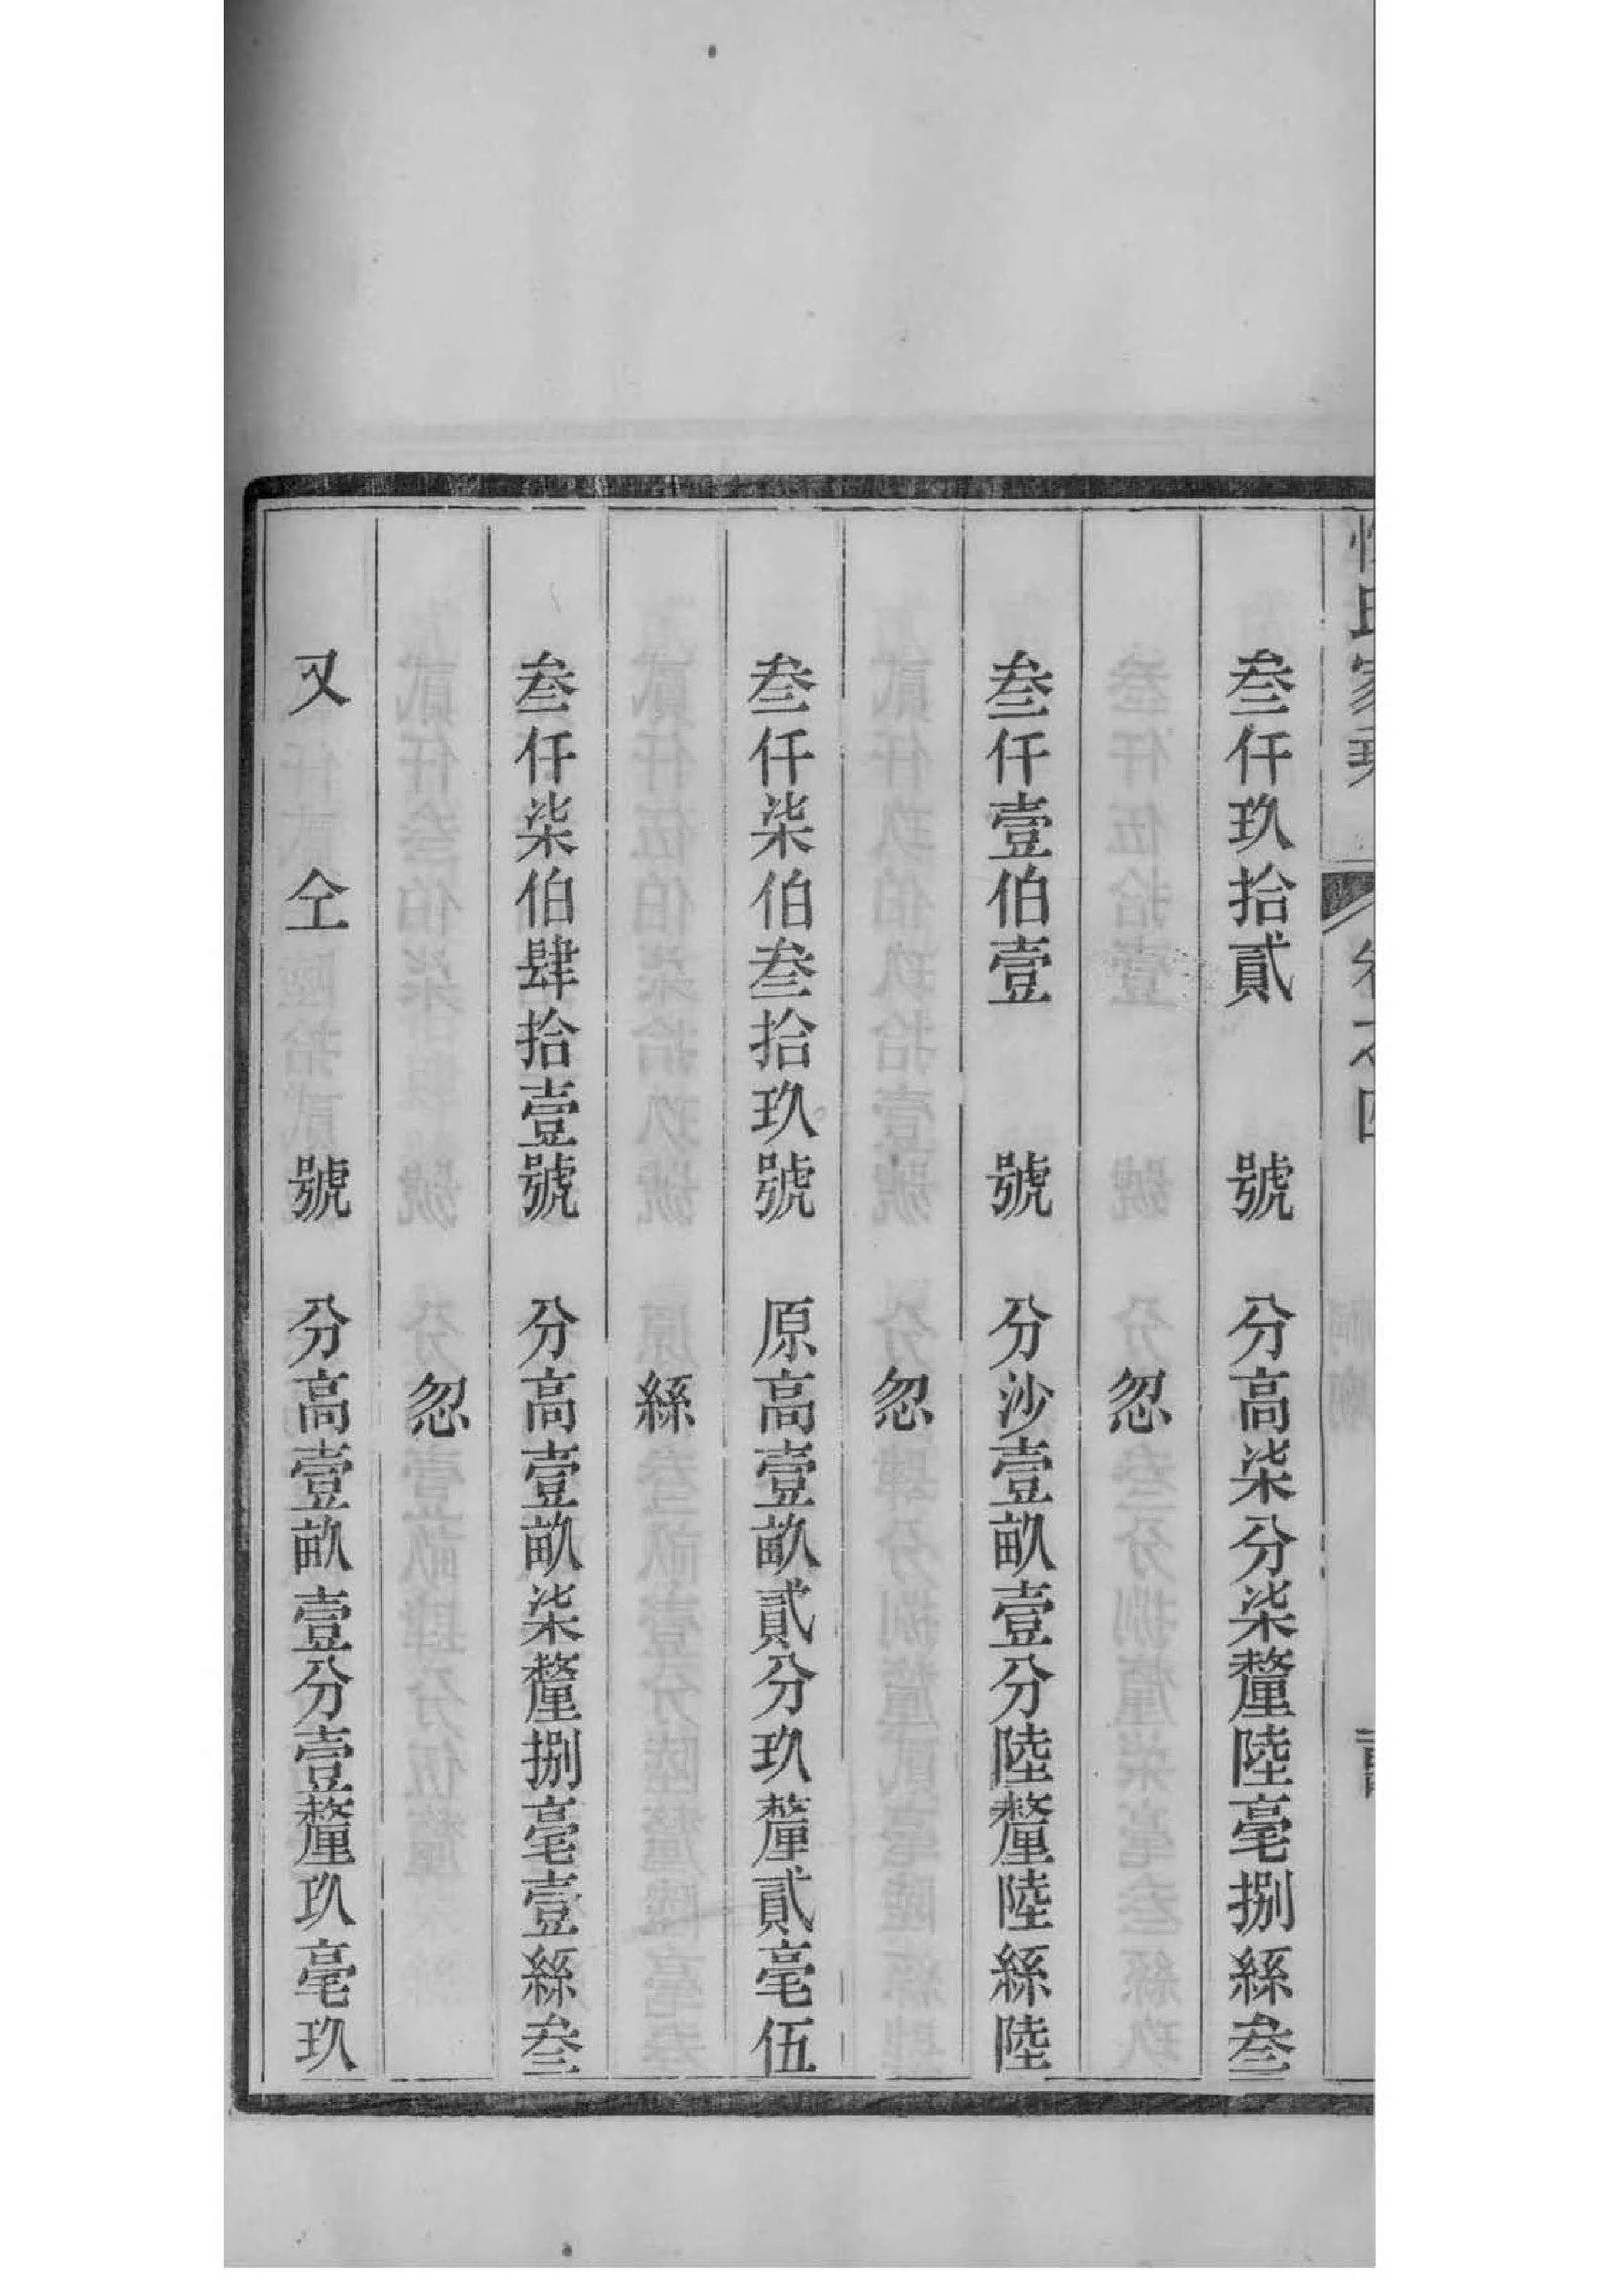 氏家乘 卷之四
叁仟玖拾貳 號 分高柒分柒釐陸毫捌絲叁
忽
叁仟壹伯壹 號 分沙壹畝壹分陸釐陸絲陸
忽
叁仟柒伯叁拾玖號 原高壹畝貳分玖釐貳毫伍
絲
叁仟柒伯肆拾壹號 分高壹畝柒釐捌毫壹絲叁
忽
又仝 號 分高壹畝壹分壹釐玖毫玖